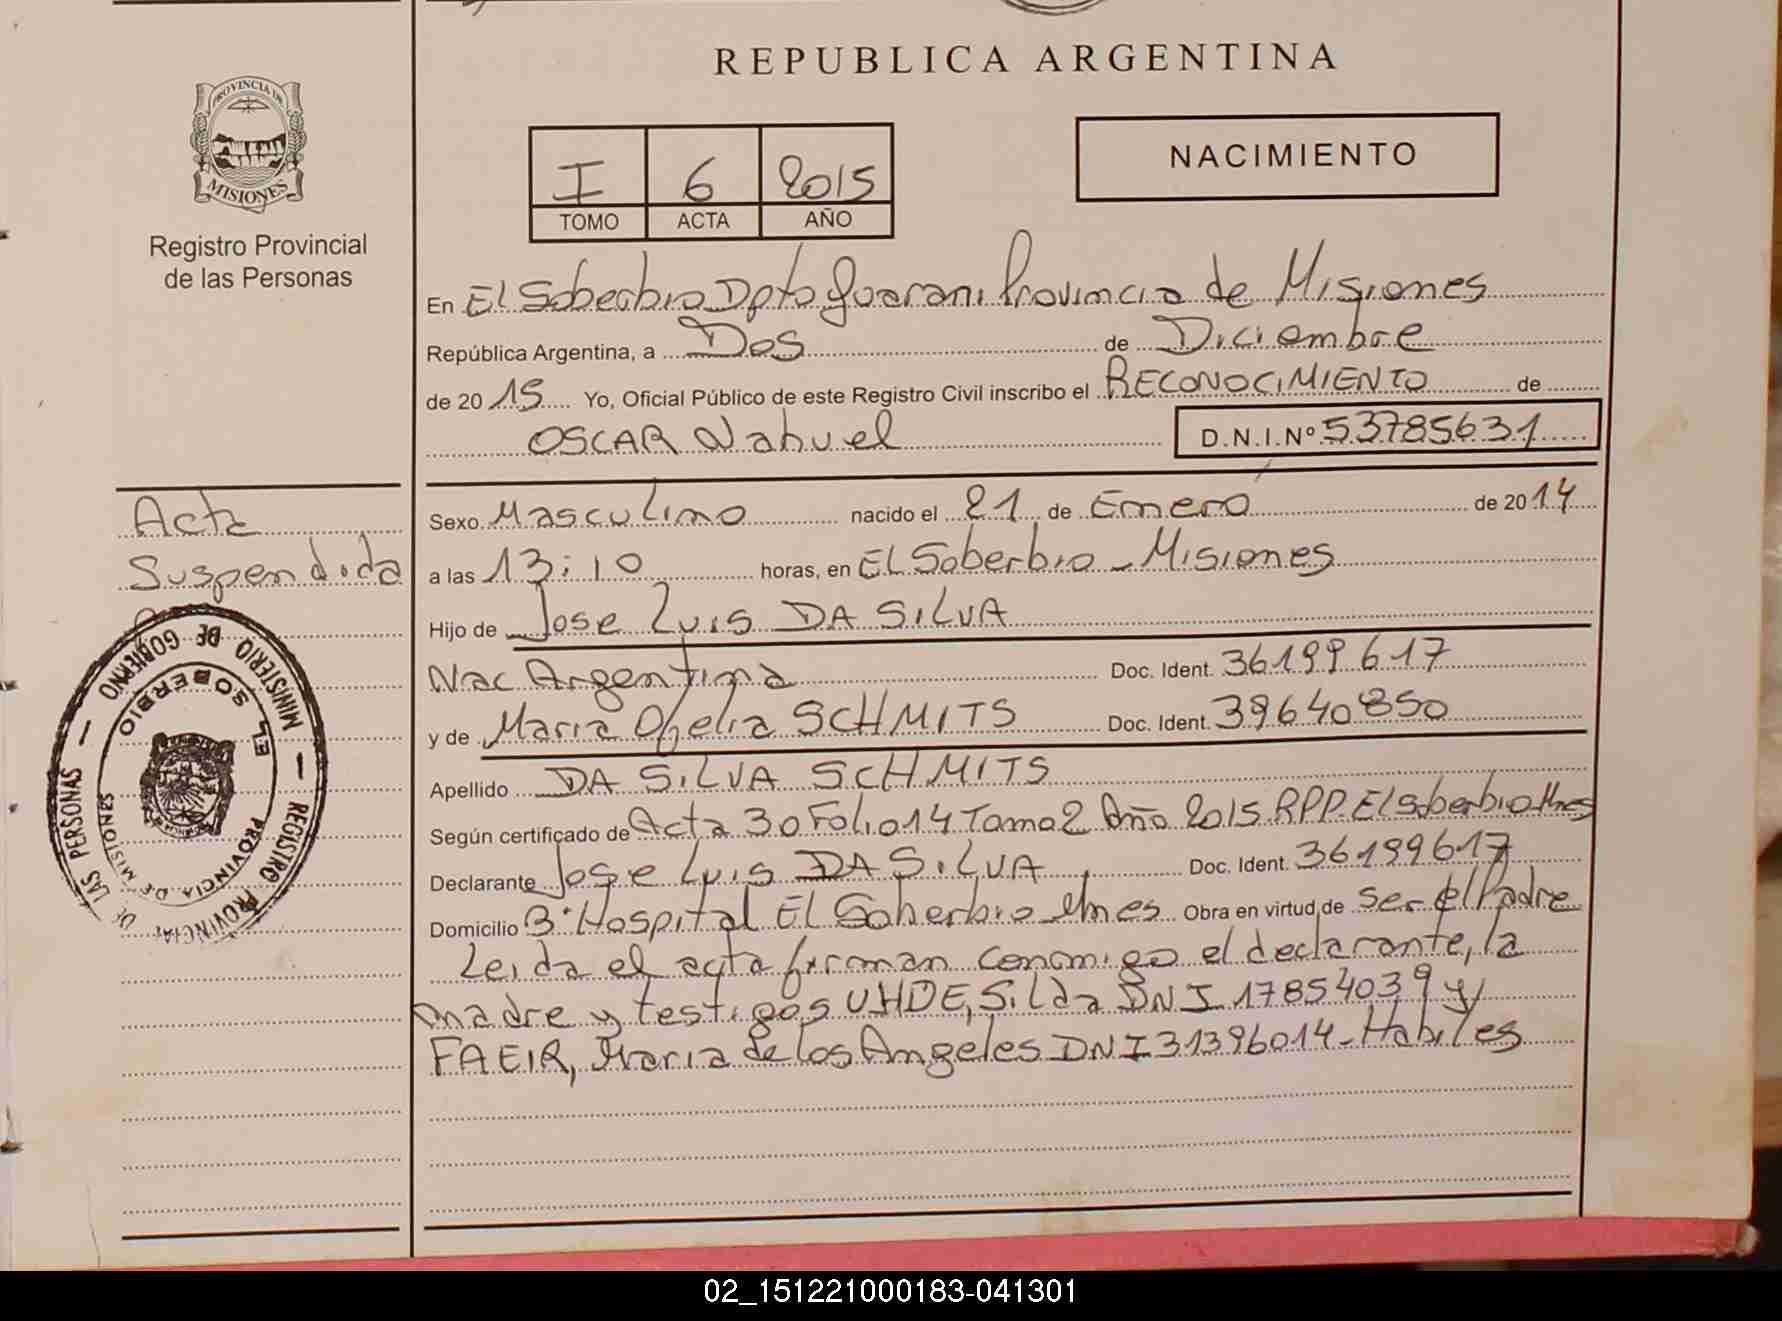 REPUBLICA ARGENTINA
PROVINCIA DE
MISIONES
Registro Provincial
de las Personas
I 6 2015
TOMO ACTA AÑO
NACIMIENTO
En El Soberbio Dpto Guarani Provincia de Misiones
República Argentina, a Dos de Diciembre
de 2015 Yo, Oficial Público de este Registro Civil inscribo el RECONOCIMIENTO de
OSCAR Nahuel D.N.I.Nº 53785631
Acta
Suspendida
Sexo Masculino nacido el 21 de Enero de 2014
a las 13:10 horas, en El Soberbio - Misiones
Hijo de Jose Luis DA SILVA
Nac Argentina Doc. Ident. 36199617
y de Maria Ofelia SCHMITS Doc. Ident. 39640850
Apellido DA SILVA SCHMITS
Según certificado de Acta 30 Folio 14 Tomo 2 Año 2015 RPP. El Soberbio Mnes
Declarante Jose Luis DA SILVA Doc. Ident. 36199617
Domicilio Bº Hospital El Soberbio Mnes Obra en virtud de ser el Padre
Leida el acta firman conmigo el declarante, la
madre y testigos UHDE, Silda DNI 17854039 y
FAEIR, Maria de los Angeles DNI 31396014 - Habiles
MINISTERIO DE GOBIERNO — REGISTRO PROVINCIAL DE LAS PERSONAS —
EL SOBERBIO
PROVINCIA DE MISIONES
02_151221000183-041301